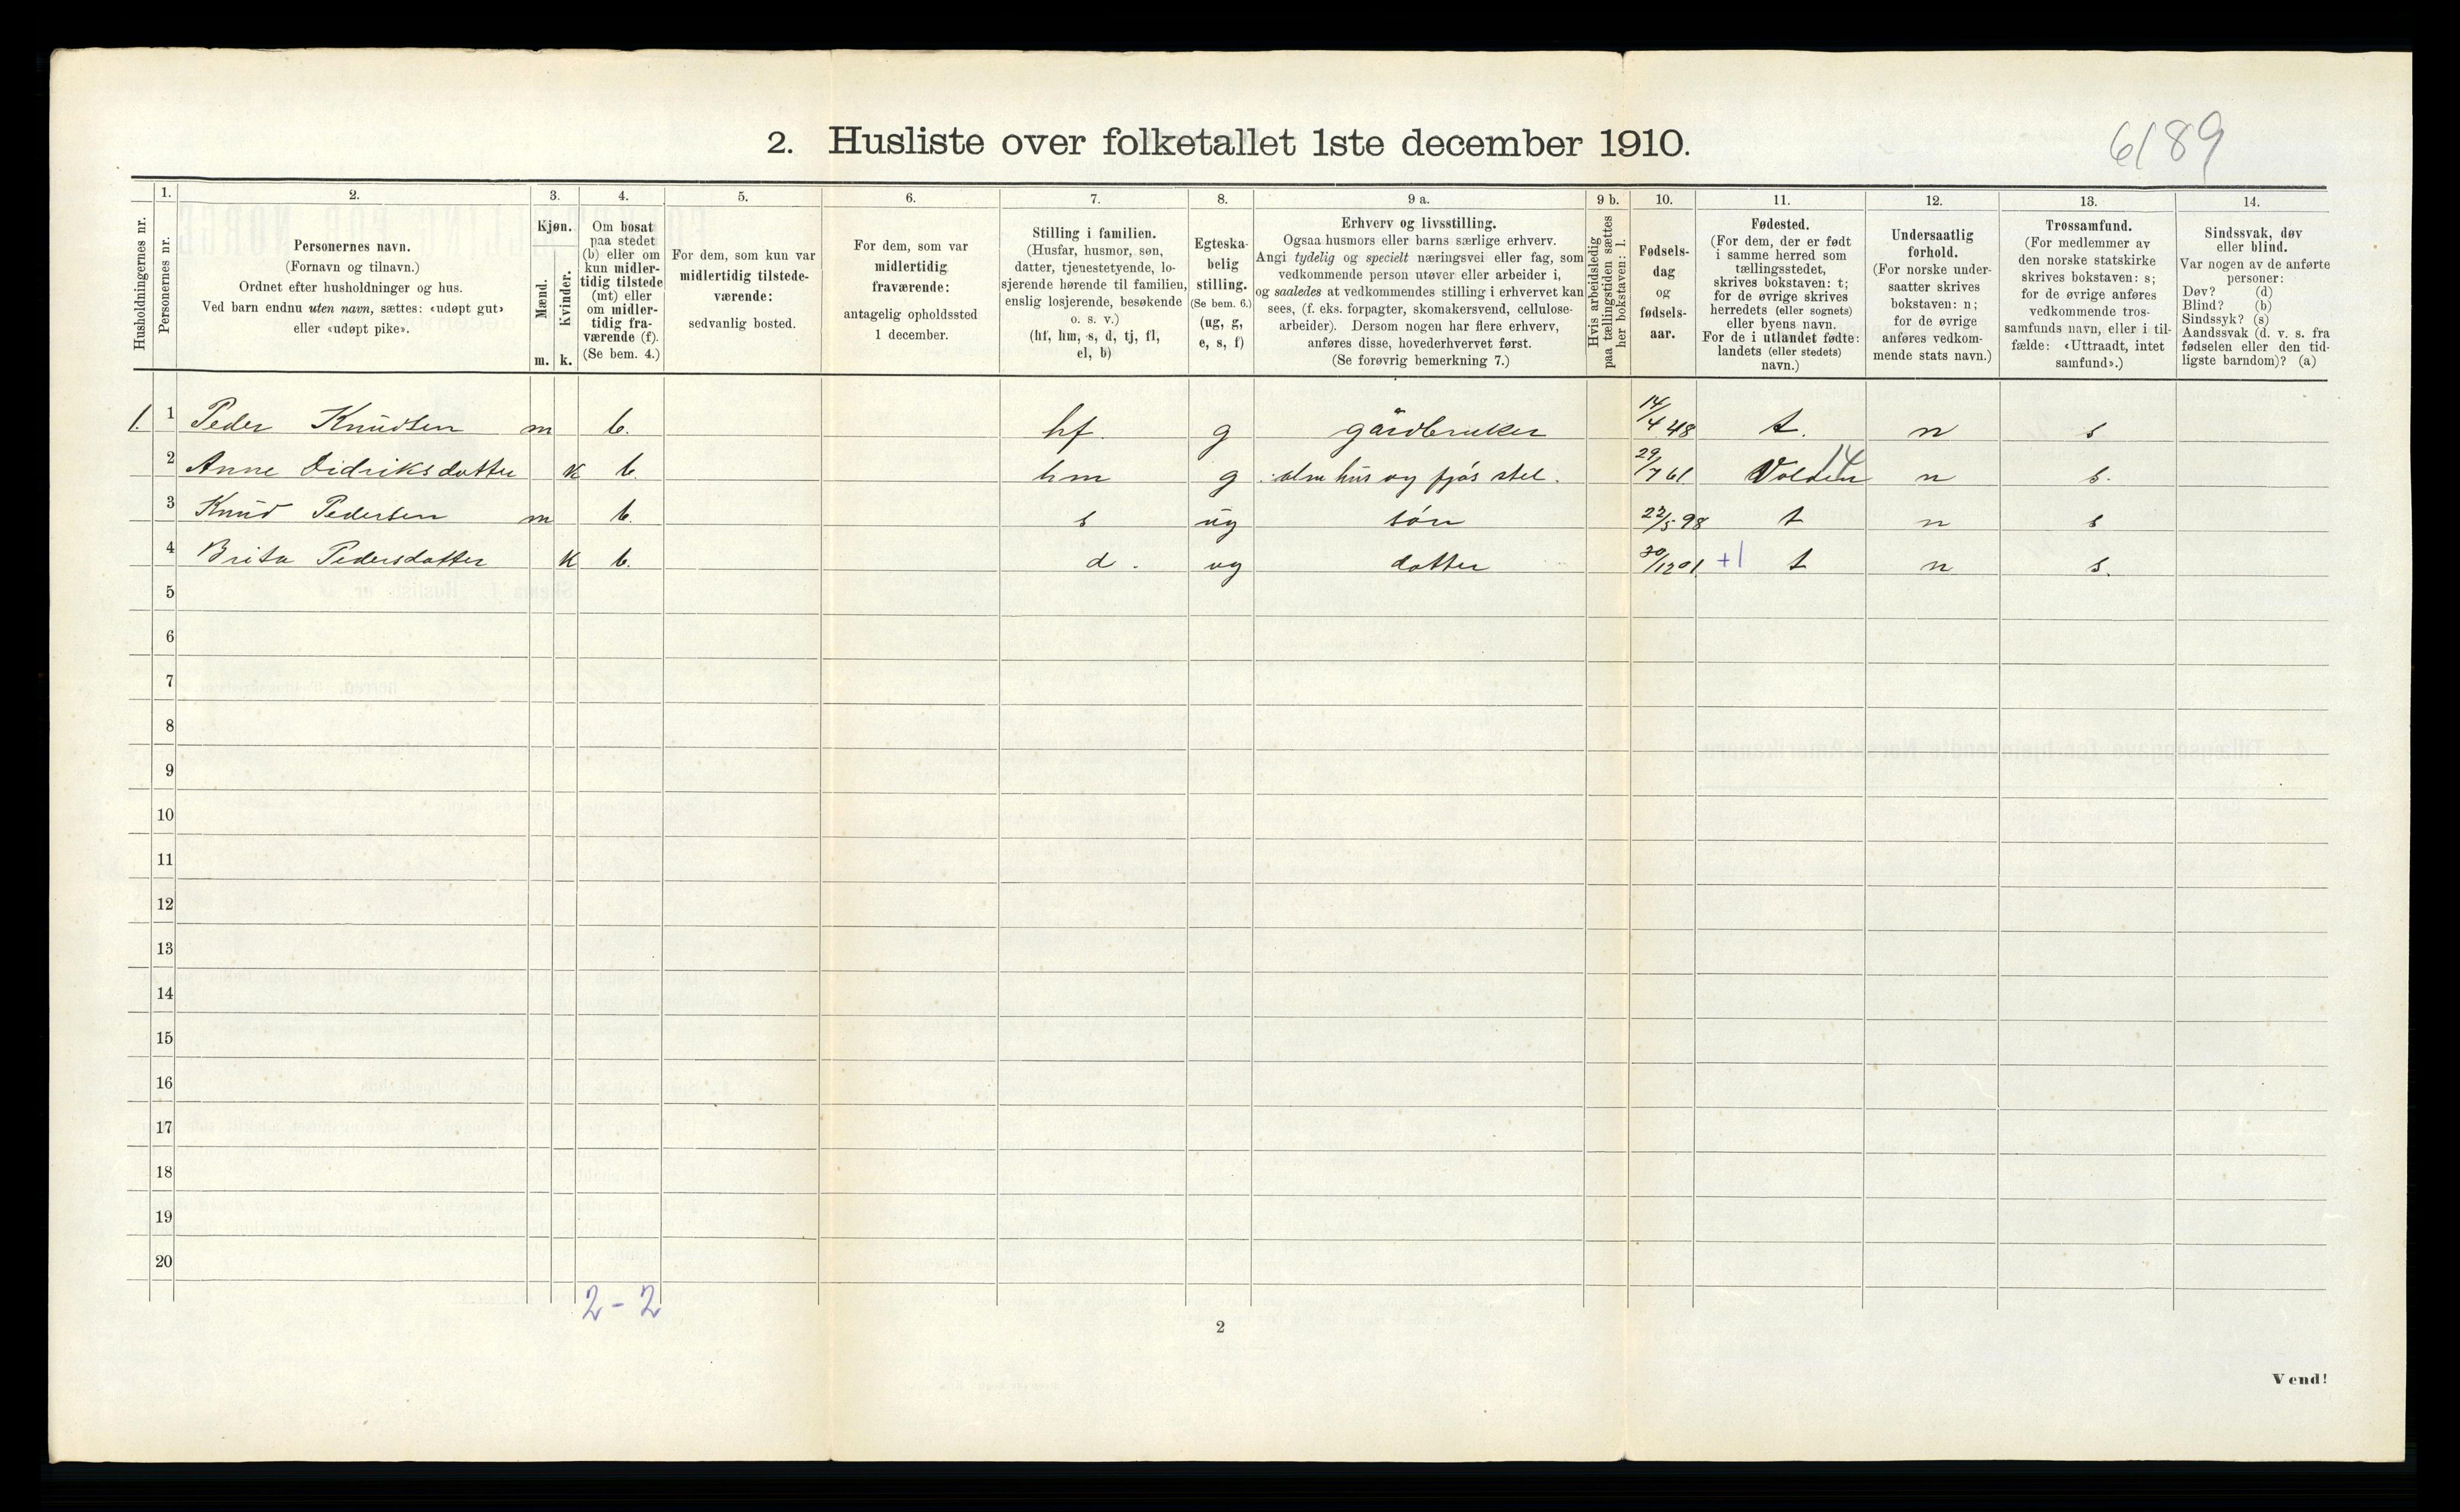 2. Husliste over folketallet 1ste december 1910.
6189
Husholdningernes nr.
1.
Personernes nr.
2.
Personernes navn.
(Fornavn og tilnavn.)
Ordnet efter husholdninger og hus.
Ved barn endnu uten navn, sættes: «udøpt gut»
eller «udøpt pike».
3.
Kjøn.
Mænd.
Kvinder.
m. k.
4.
Om bosat
paa stedet
(b) eller om
kun midler-
tidig tilstede
(mt) eller
om midler-
tidig fra-
værende (f).
(Se bem. 4.)
5.
For dem, som kun var
midlertidig tilstede-
værende:
sedvanlig bosted.
6.
For dem, som var
midlertidig
fraværende:
antagelig opholdssted
1 december.
7.
Stilling i familien.
(Husfar, husmor, søn,
datter, tjenestetyende, lo-
sjerende hørende til familien,
enslig losjerende, besøkende
o. s. v.)
(hf, hm, s, d, tj, fl,
el, b)
8.
Egteska-
belig
stilling.
(Se bem. 6.)
(ug, g,
e, s, f)
9 a.
Erhverv og livsstilling.
Ogsaa husmors eller barns særlige erhverv.
Angi tydelig og specielt næringsvei eller fag, som
vedkommende person utøver eller arbeider i,
og saaledes at vedkommendes stilling i erhvervet kan
sees, (f. eks. forpagter, skomakersvend, cellulose-
arbeider). Dersom nogen har flere erhverv,
anføres disse, hovederhvervet først.
(Se forøvrig bemerkning 7.)
9 b.
Hvis arbeidsledig
paa tællingstiden sættes
her bokstaven: l.
10.
Fødsels-
dag
og
fødsels-
aar.
11.
Fødested.
(For dem, der er født
i samme herred som
tællingsstedet,
skrives bokstaven: t;
for de øvrige skrives
herredets (eller sognets)
eller byens navn.
For de i utlandet fødte:
landets (eller stedets)
navn.)
12.
Undersaatlig
forhold.
(For norske under-
saatter skrives
bokstaven: n;
for de øvrige
anføres vedkom-
mende stats navn.)
13.
Trossamfund.
(For medlemmer av
den norske statskirke
skrives bokstaven: s;
for de øvrige anføres
vedkommende tros-
samfunds navn, eller i til-
fælde: «Uttraadt, intet
samfund».)
14.
Sindssvak, døv
eller blind.
Var nogen av de anførte
personer:
Døv? (d)
Blind? (b)
Sindssyk? (s)
Aandssvak (d. v. s. fra
fødselen eller den tid-
ligste barndom)? (a)
1. 1 Peder Knudsen m b. hf. g gårdbruker 14/4 48 t. n s
2 Anne Didriksdotter k b. hm g alm hus og fjøs stel. 29/7 61 Volden 14 n s.
3 Knud Pedersen m b. s ug søn 22/5 98 t n s
4 Brita Pedersdotter k b. d. ug dotter 30/12 01 +1 t n s.
5
6
7
8
9
10
11
12
13
14
15
16
17
18
19
20
2-2
2
Vend!